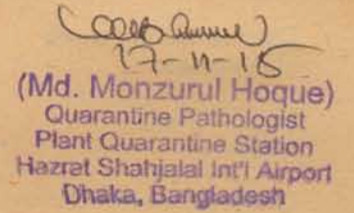 17-11-15
(Md. Monzurul Hoque)
Quarantine Pathologist
Plant Quarantine Station
Hazrat Shahjalal Int'l Airport
Dhaka, Bangladesh